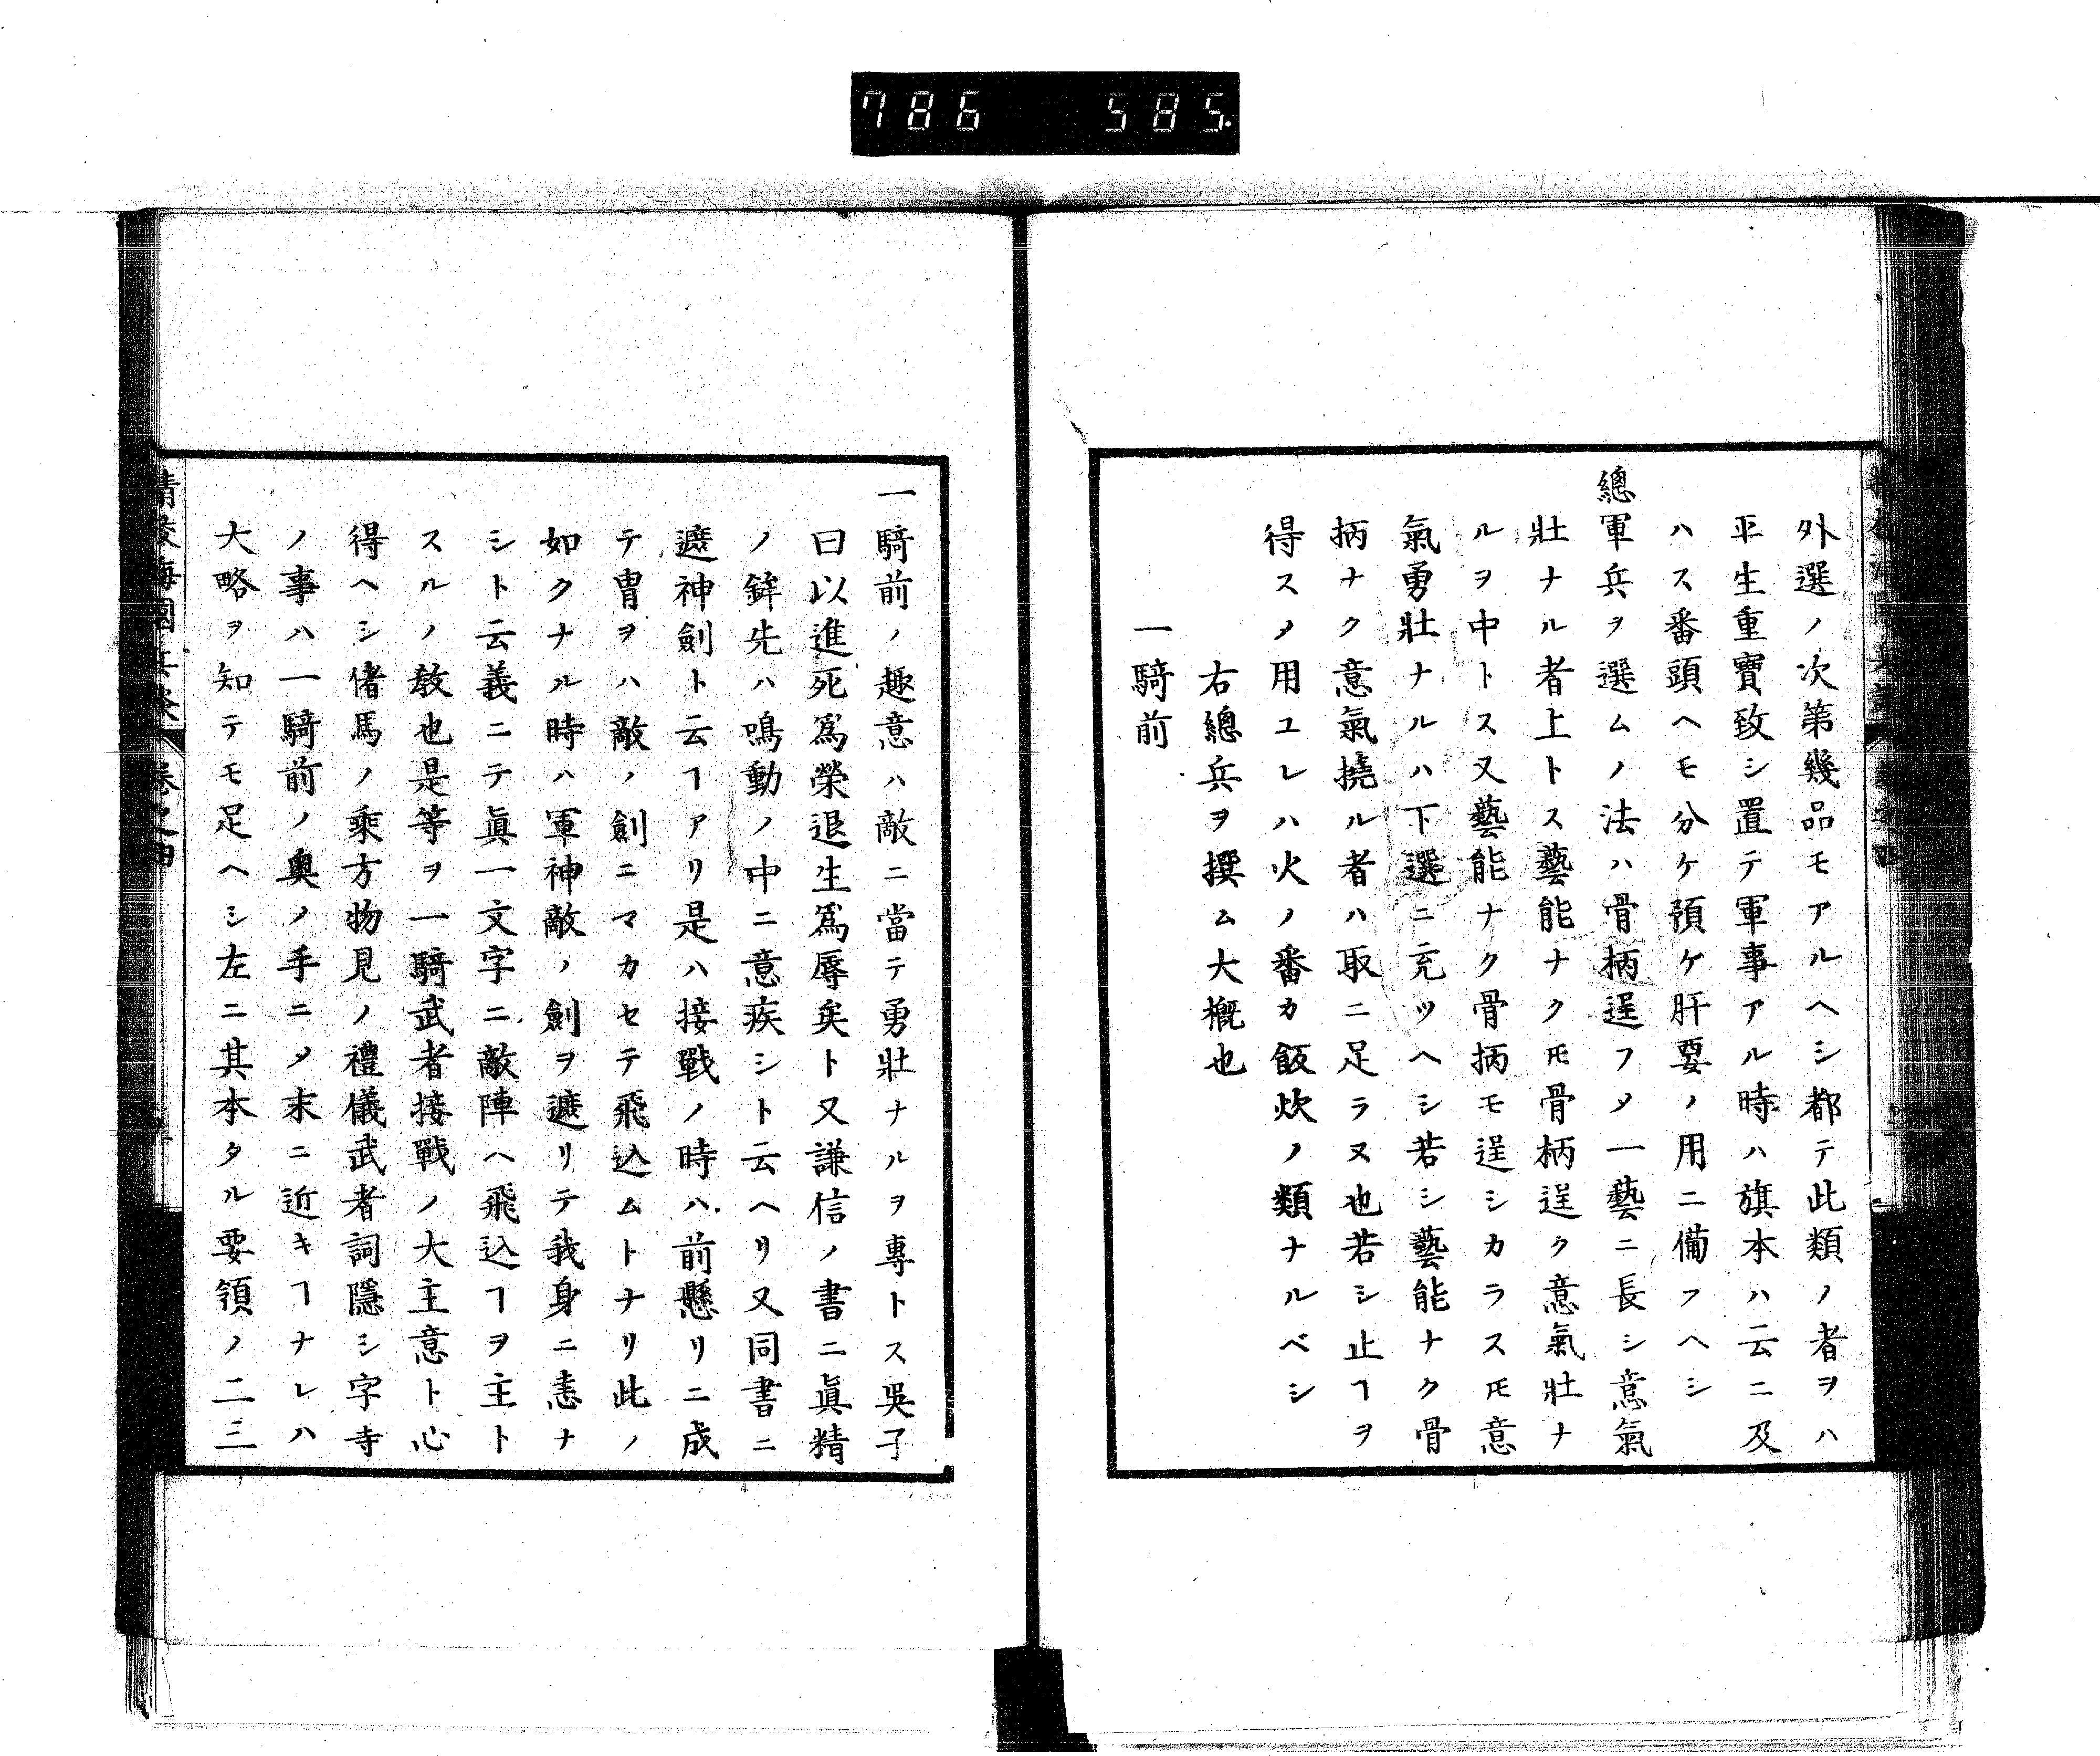 786 585
外選ノ次第幾品モアルヘシ都テ此類ノ者ヲハ
平生重寶致シ置テ軍事アル時ハ旗本ハ云ニ及
ハス番頭ヘモ分ケ預ケ肝要ノ用ニ備フヘシ
總軍兵ヲ選ムノ法ハ骨柄逞フメ一藝ニ長シ意氣
壯ナル者上トス藝能ナクㇳモ骨柄逞ク意氣壯ナ
ルヲ中トス又藝能ナク骨柄モ逞シカラスㇳモ意
氣勇壯ナルハ下選ニ充ツヘシ若シ藝能ナク骨
柄ナク意氣撓ル者ハ取ニ足ラヌ也若シ止ヿヲ
得スメ用ユレハ火ノ番カ飯炊ノ類ナルベシ
右總兵ヲ撰ム大概也
一騎前
一騎前ノ趣意ハ敵ニ當テ勇壯ナルヲ專トス吳子
曰以進死爲榮退生爲辱矣ト又謙信ノ書ニ眞精
ノ鉾先ハ鳴動ノ中ニ意疾シト云ヘリ又同書ニ
遮神劍ト云ヿアリ是ハ接戰ノ時ハ前懸リニ成
テ冑ヲハ敵ノ劍ニマカセテ飛込ムトナリ此ノ
如クナル時ハ軍神敵ノ劍ヲ遮リテ我身ニ恙ナ
シト云義ニテ眞一文字ニ敵陣ヘ飛込ヿヲ主ト
スルノ教也是等ヲ一騎武者接戰ノ大主意ト心
得ヘシ偖馬ノ乘方物見ノ禮儀武者詞隱シ字寺
ノ事ハ一騎前ノ奧ノ手ニメ末ニ近キヿナレハ
大略ヲ知テモ足ヘシ左ニ其本タル要領ノ二三
海國兵談 卷之四